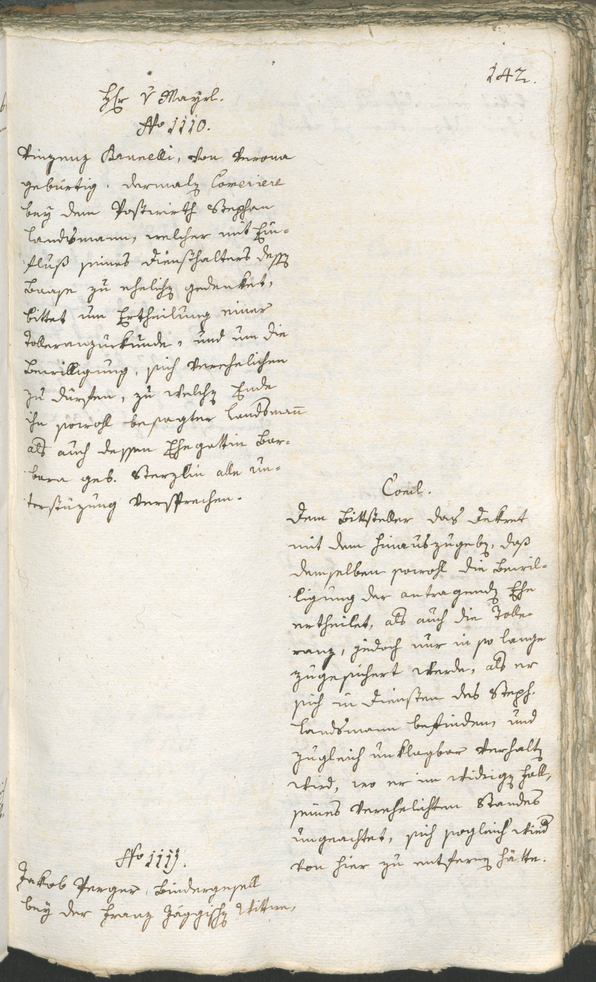 142.
Hr. v Mayrl.
No 1110.
Vinzenz Banelli, von Verona
gebürtig, dermalz Cameriere
bey dem Postwirth Stephan
Landsmann, welcher mit Ein-
fluß seines Dienschalters deßz
Baase zu ehelichz gedenket,
bittet um Ertheilung einer
Tolleranzurkunde, und um die
Bewilligung, sich verehelichen
zu dürfen, zu welchz Ende
ihm sowohl besagter Landsmann
als auch dessen Ehegattin Bar-
bara geb. Sterzlin alle Un-
terstüzung versprechen.
Concl.
Dem Bittsteller das Dekret
mit dem hinauszugebz, daß
demselben sowohl die Bewil-
ligung der antragendz Ehe
ertheilet, als auch die Tolle-
ranz, jedoch nur in so lange
zugesichert werde, als er
sich in Diensten des Steph.
Landsmann befinden, und
zugleich unklagbar verhaltz
wird, wo er im widrigz Fall,
seines verehelichten Standes
ungeachtet, sich sogleich wied
von hier zu entfernz hätte.
No 1111.
Jakob Perger, Bindergesell
bey der Franz Jäggischz Wittwe,